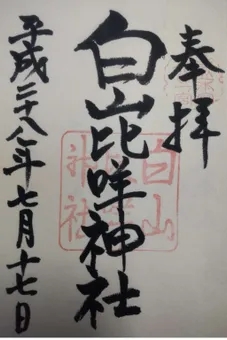 奉拝
白山比咩神社
平成二十八年七月十七日